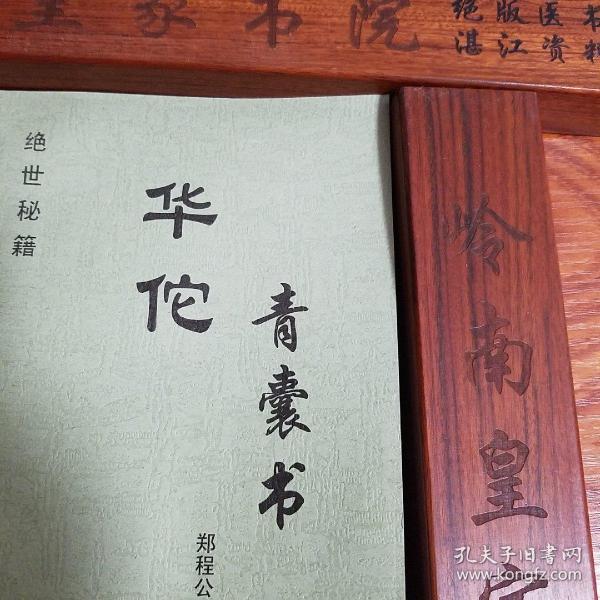 皇家书院
绝版医书
湛江资料
绝世秘籍
华佗
青囊书
郑程公
岭南皇家
孔夫子旧书网
www.kongfz.com